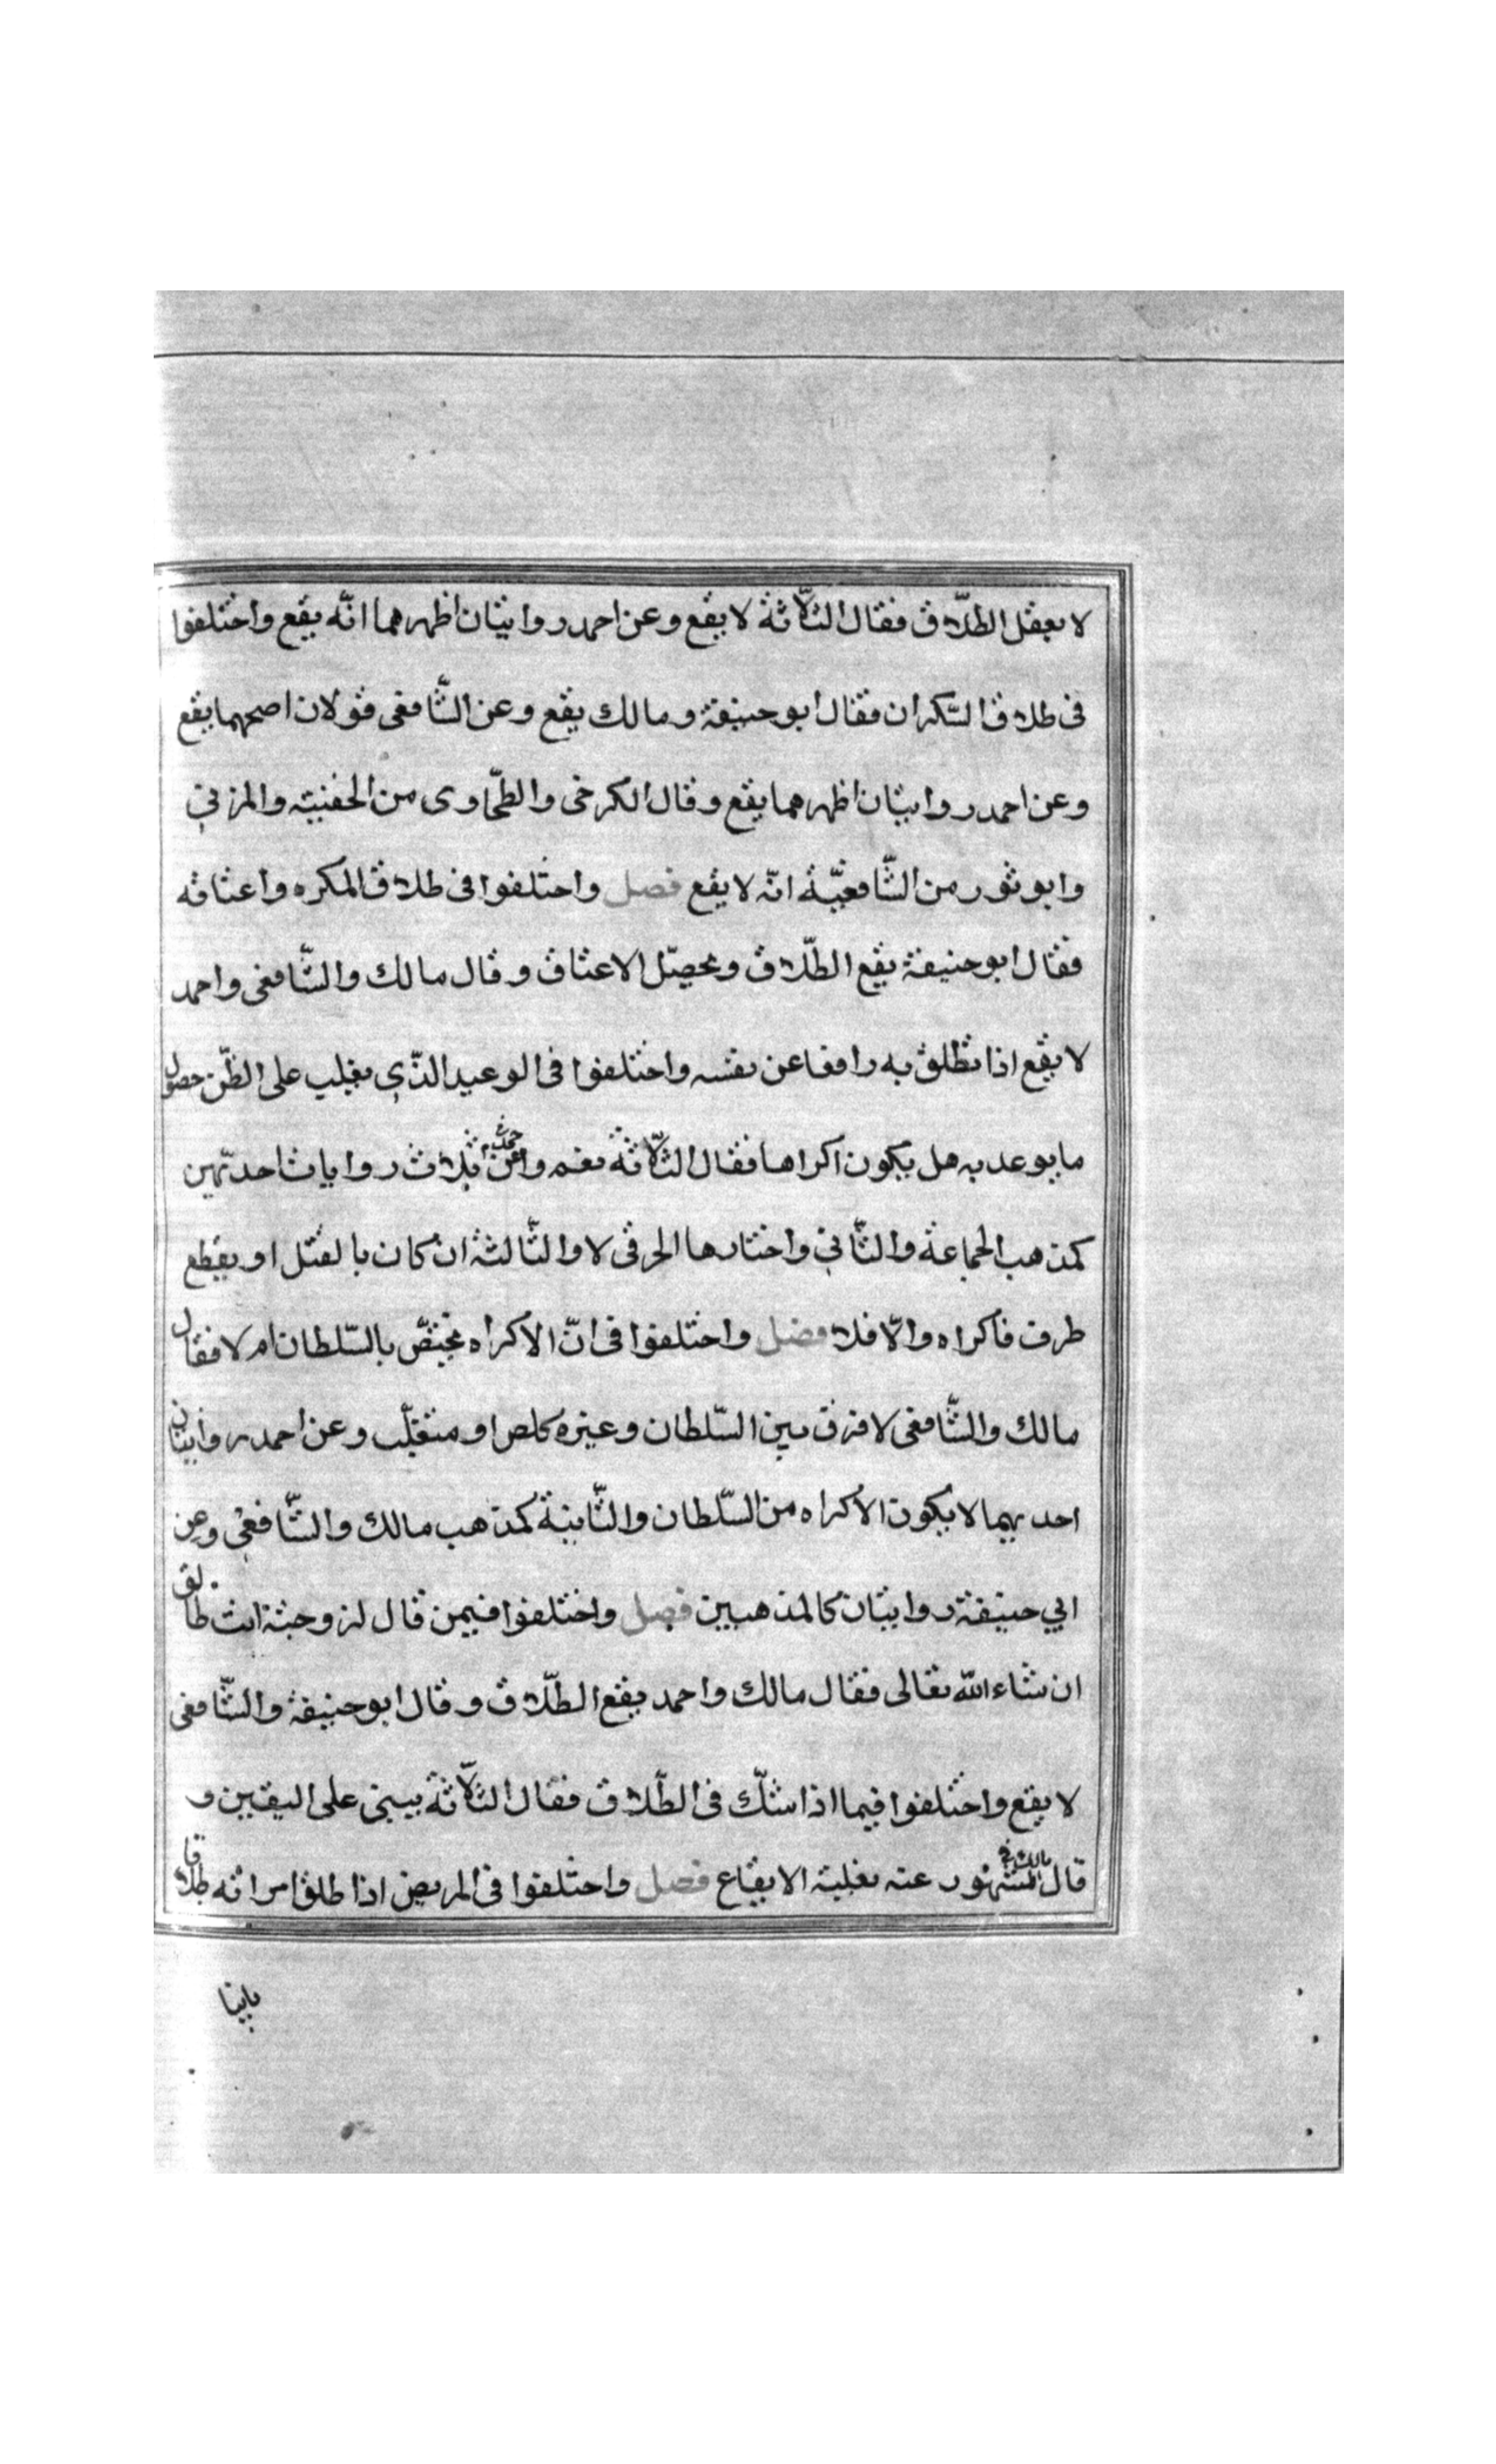 لا يعقل الطلّاق فقال الثلّاثة لا يقع وعن احمد روايتان اظهرهما انّه يقع واختلفوا
فى طلاق السّكران فقال ابو حنيفة ومالك يقع وعن الشّافعى قولان اصحهما يقع
وعن احمد روايتان اظهرهما يقع وقال الكرخى والطحّاوى من الحنفيته والمزني
وابو ثور من الشّافعيّة انّه لا يقع فصل واختلفوا فى طلاق المكره واعتاقه
فقال ابو حنيفة يقع الطلّاق ويحصّل الاعتاق وقال مالك والشّافعى واحمد
لا يقع اذا نطلق به رافعا عن نفسه واختلفوا فى الوعيد الذّي يغلب على الظّن حصول
ما يوعد به هل يكون اكراها فقال الثلّاثة نعم وعن احمد ثلاث روايات احديهن
كمذهب الجماعة والثّاني واختارها الحرقى لا والثّالثة ان كان بالقتل او يقطع
طرف فاكراه والّا فلا فصل واختلفوا فى انّ الاكراه يختصّ بالسّلطان ام لا فقال
مالك والشّافعى لا فرق بين السّلطان وغيره كلص او متغلّب وعن احمد روايتان
احديهما لا يكون الاكراه من السّلطان والثّانية كمذهب مالك والشّافعى وعن
ابي حنيفة روايتان كالمذهبين فصل واختلفوا فيمن قال لزوجتة انت طالق
ان شاء اللّه تعالى فقال مالك واحمد يقع الطلّاق وقال ابو حنيفة والشّافعى
لا يقع واختلفوا فيما اذا شكّ فى الطّلاق فقال الثلّاثة يبنى على اليقين و
قال مالك فى المشهور عنه بغلبة الايقاع فصل واختلفوا فى المريض اذا طلق امراته طلاقا
باينا